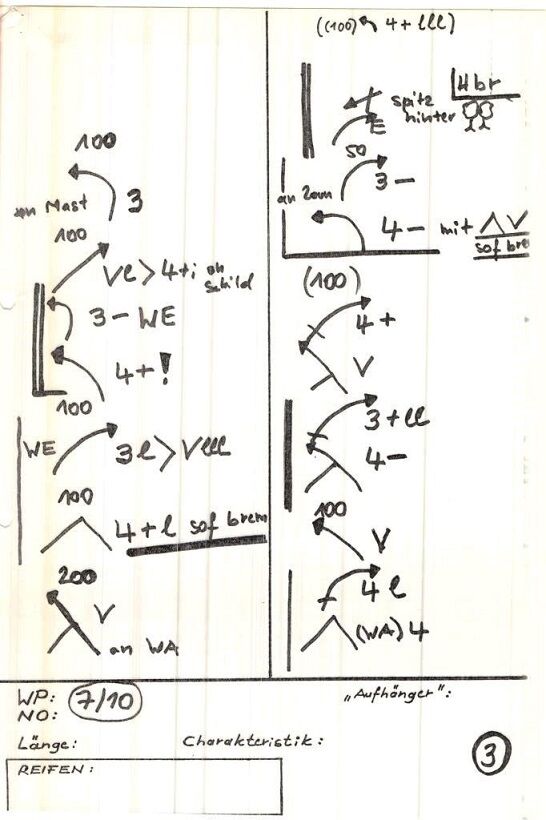 100
an Mast 3
100
Vl > 4+i an schild
3 - WE
4+!
100
WE 3l > Vlll
100
4+l sof brem
200
V
an WA
((100) 4+lll)
4br
spitz hinter
E
50
3 -
an Zaun
4 - mit ΛV
sof bre
(100)
4+
V
3+ll
4 -
100
V
4l
(WA) 4
WP: 7/10
NO:
Länge:
REIFEN:
Charakteristik:
„Aufhänger":
3